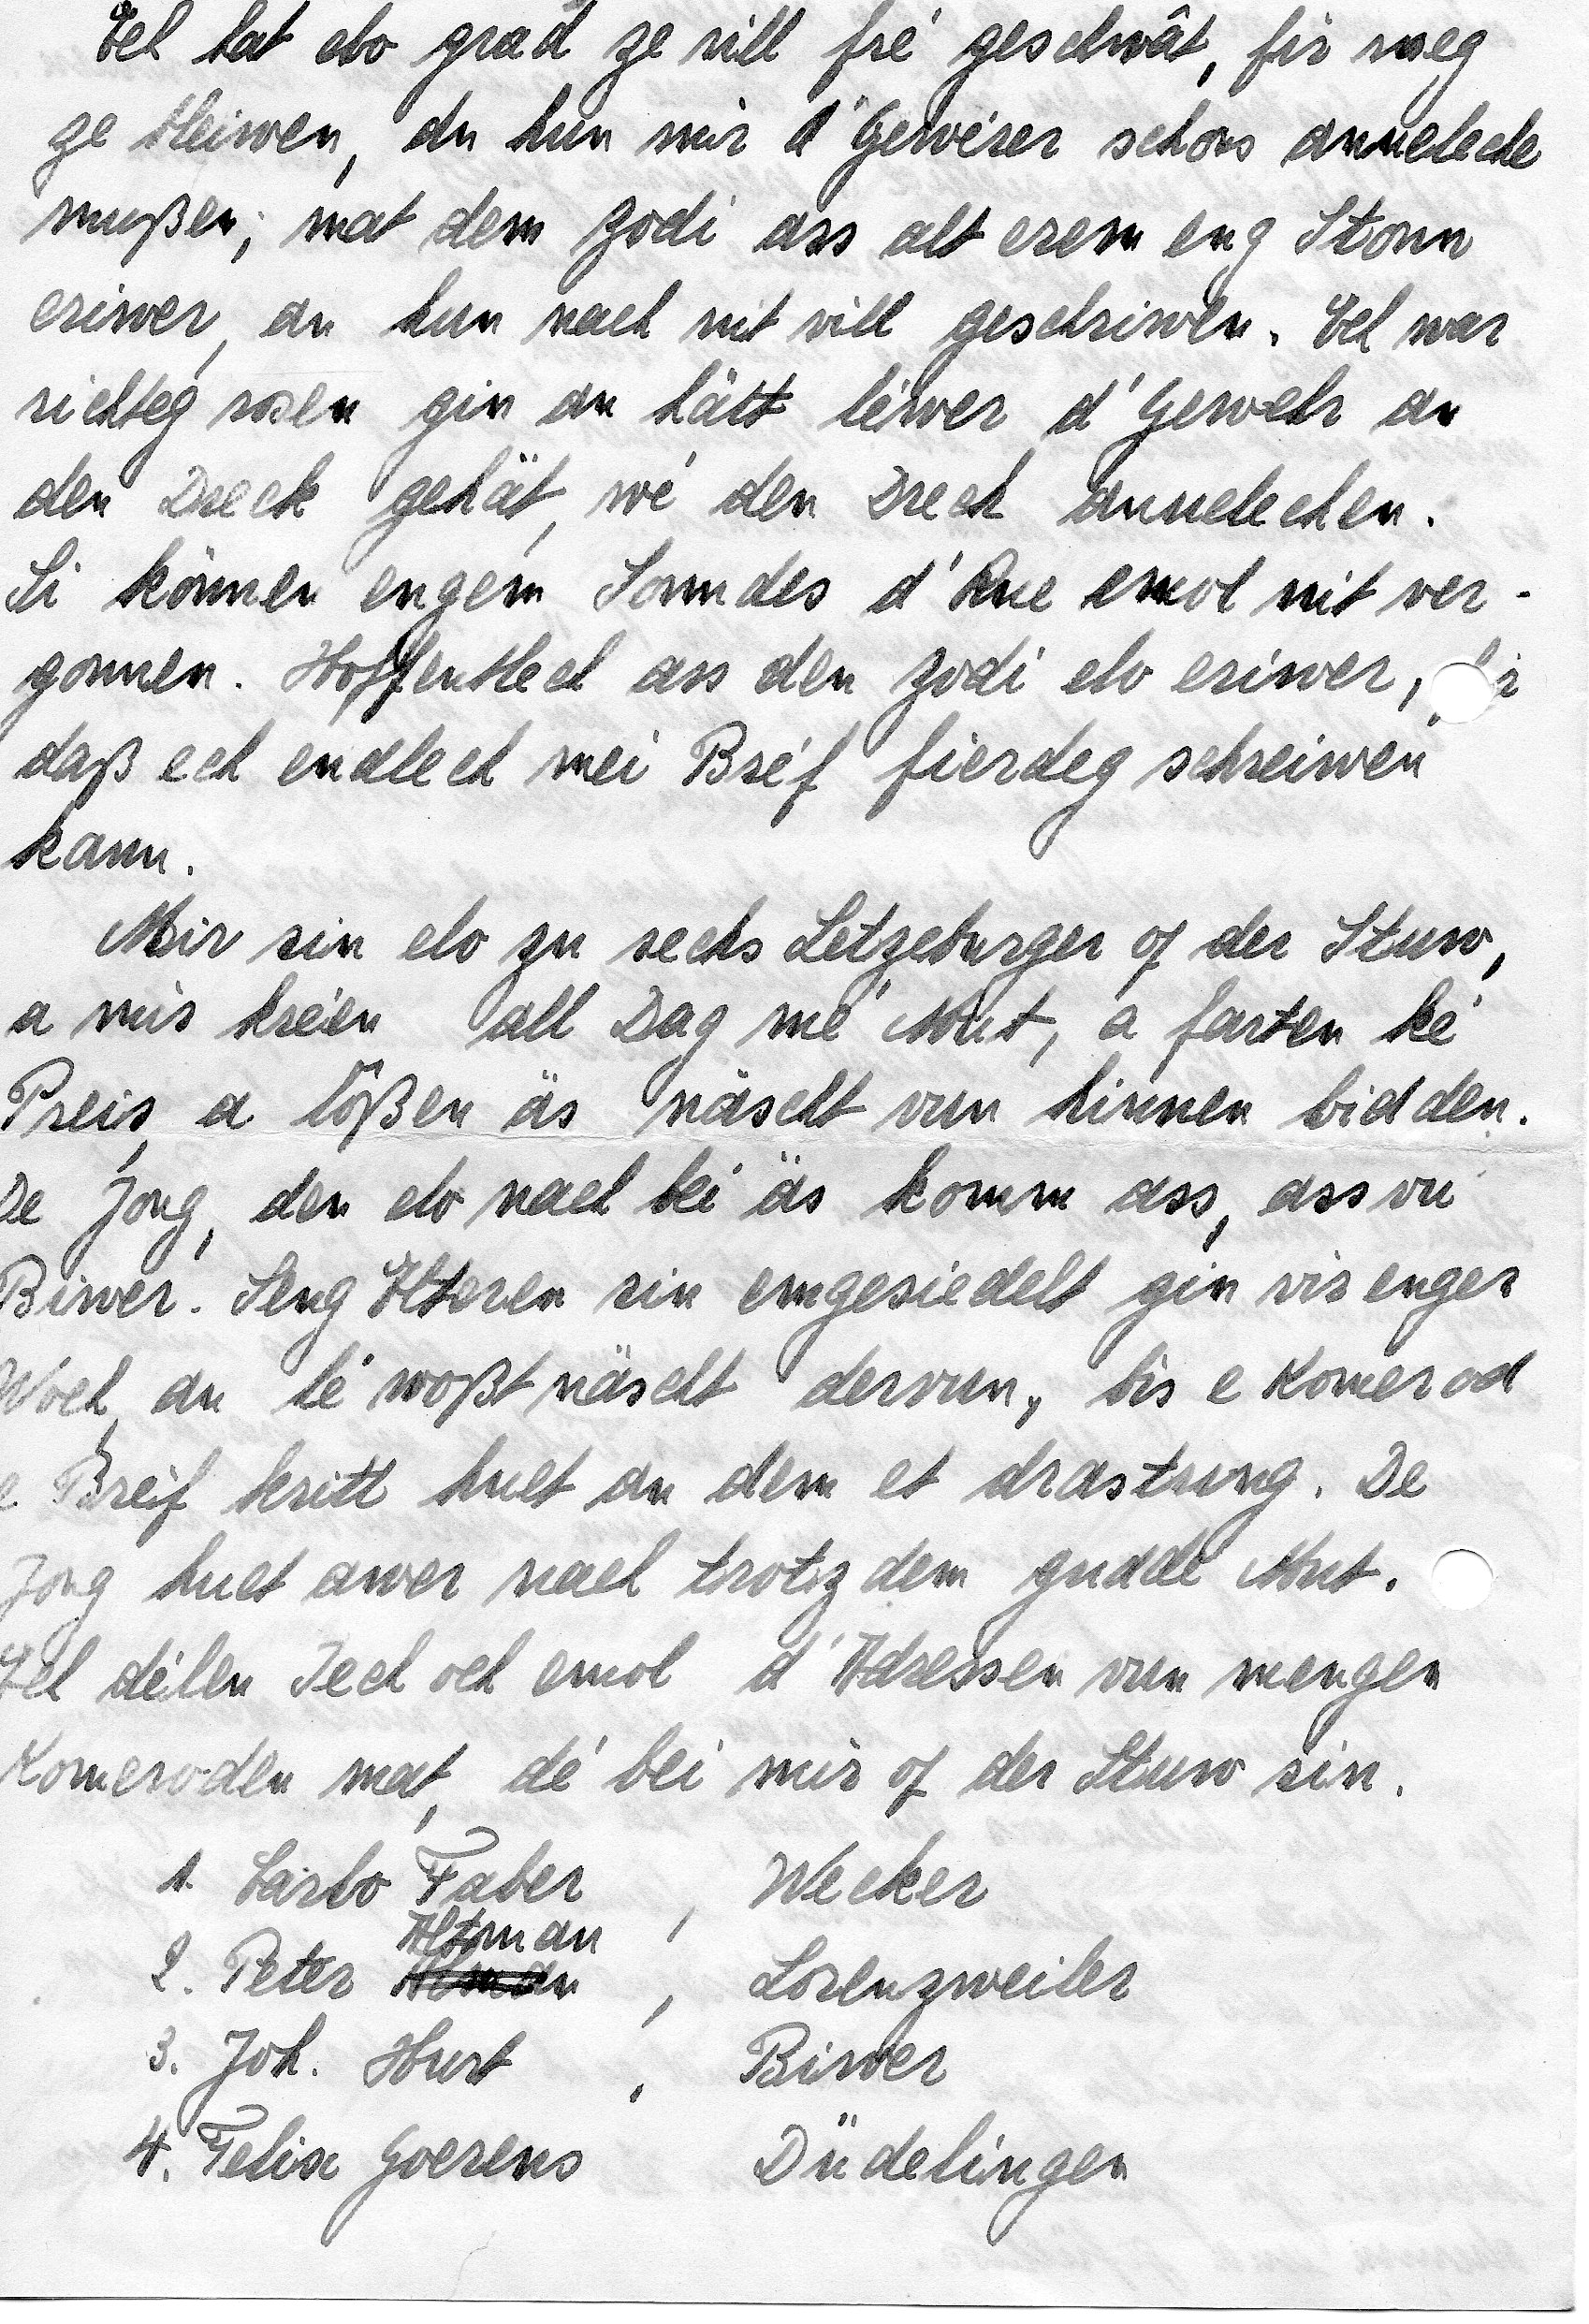 Ech hat elo grad ze vill fré geschwât, fir weg
ze bleiwen, du hun mir d'Gewérer schons annelech
mußen; mat dem Zodi ass alt erem eng Stonn
eriwer, an hun nach nit vill geschriwen. Ech war
richteg rosen gin an hätt léwer d'Gewehr an
den Dreck gehät, wé den Dreck annelechen.
Si können engem Sonndes d'Rue emol nit ver-
gonnen. Hoffentlech ass den Zodi elo eriwer,
daß ech endlech mei Bréf fierdeg schreiwen
kann.
Mir sin elo zu sechs Letzeburger of der Stuw,
a mir kréen all Dag mé Mut, a farten ké
Preis, a lößen äs näscht vun hinnen bidden.
De Jong, den elo nach bei äs komm ass, ass vu
Biwer. Seng Elteren sin emgesiedelt gin vir enger
Woch, an hé woßt näscht dervun, bis e Komerod
e Breif kritt huet an dem et drastung. De
Jong huet awer nach trotzdem gudde Mut.
Ech délen Iech och emol d'Adressen vun mengen
Komeroden mat, dé bei mir of der Stuw sin.
1. Carlo Faber, Wecker
2. Peter Altman, Lorenzweiler
3. Joh. Hurt, Biwer
4. Felix Goerens Düdelingen